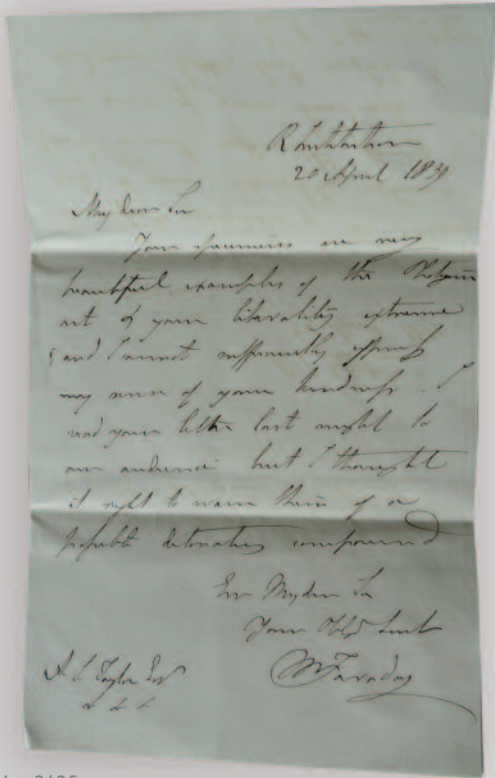 R Institution
20 April 1839
My dear Sir
Your specimens are very
beautiful examples of the Photogenic
art & your liberality extreme
and I cannot sufficiently express
my sense of your kindness. I
read your letter last night to
our audience but I thought
it right to warn them of a
probable detonating compound
Ever My dear Sir
Your Obliged Servt
M Faraday
A. S. Taylor Esq
&c &c &c